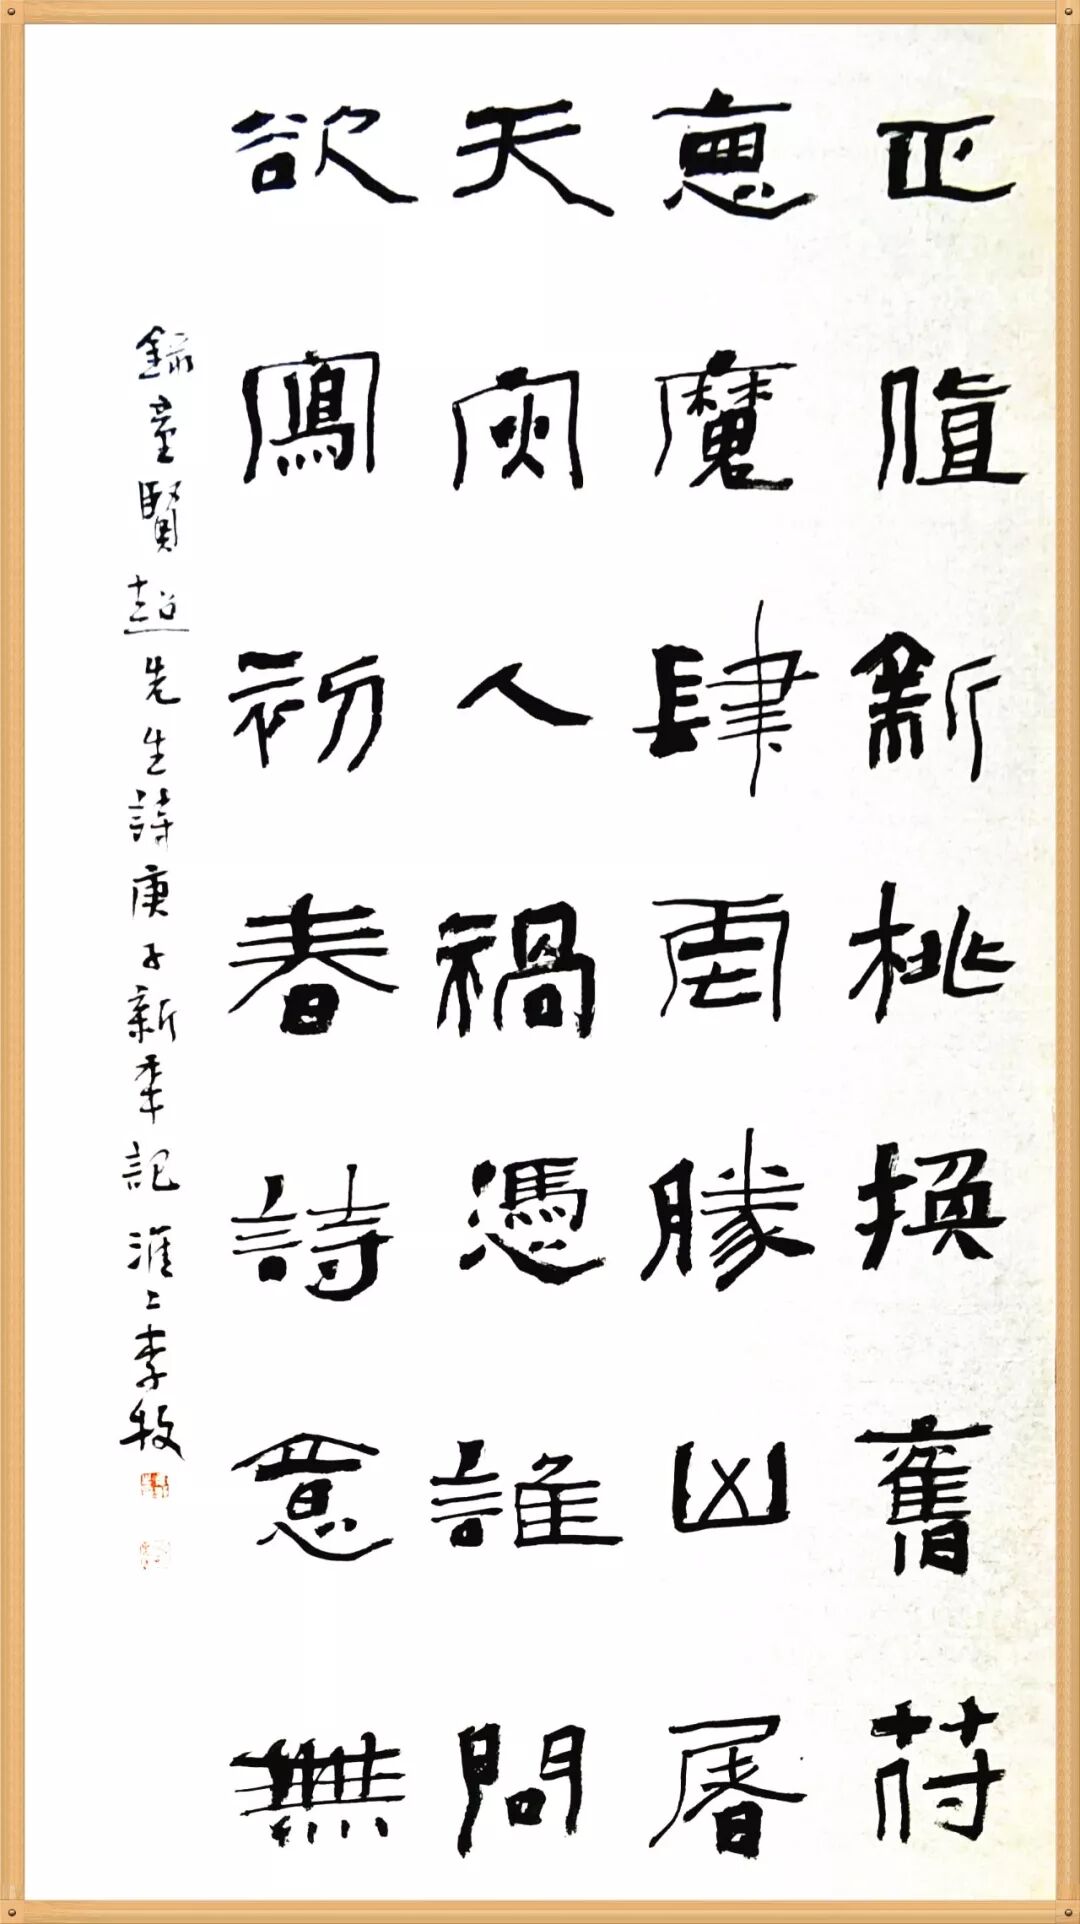 正值新桃換舊符
惡魔肆虐勝凶屠
天灾人禍憑誰問
欲寫初春詩意無
錄童賢超先生詩庚子新年記淮上李牧